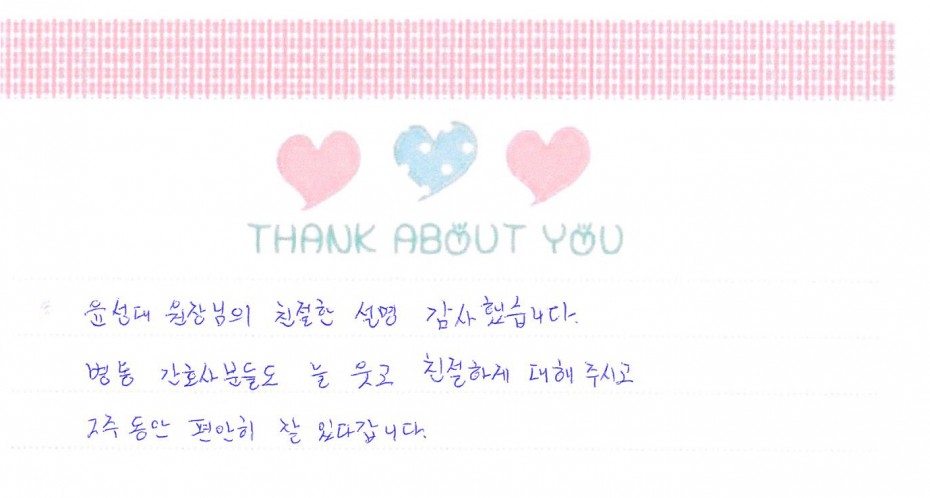 THANK ABOUT YOU
윤성대 원장님의 친절한 설명 감사했습니다.
병동 간호사분들도 늘 웃고 친절하게 대해 주시고
2주 동안 편안히 잘 있다갑니다.